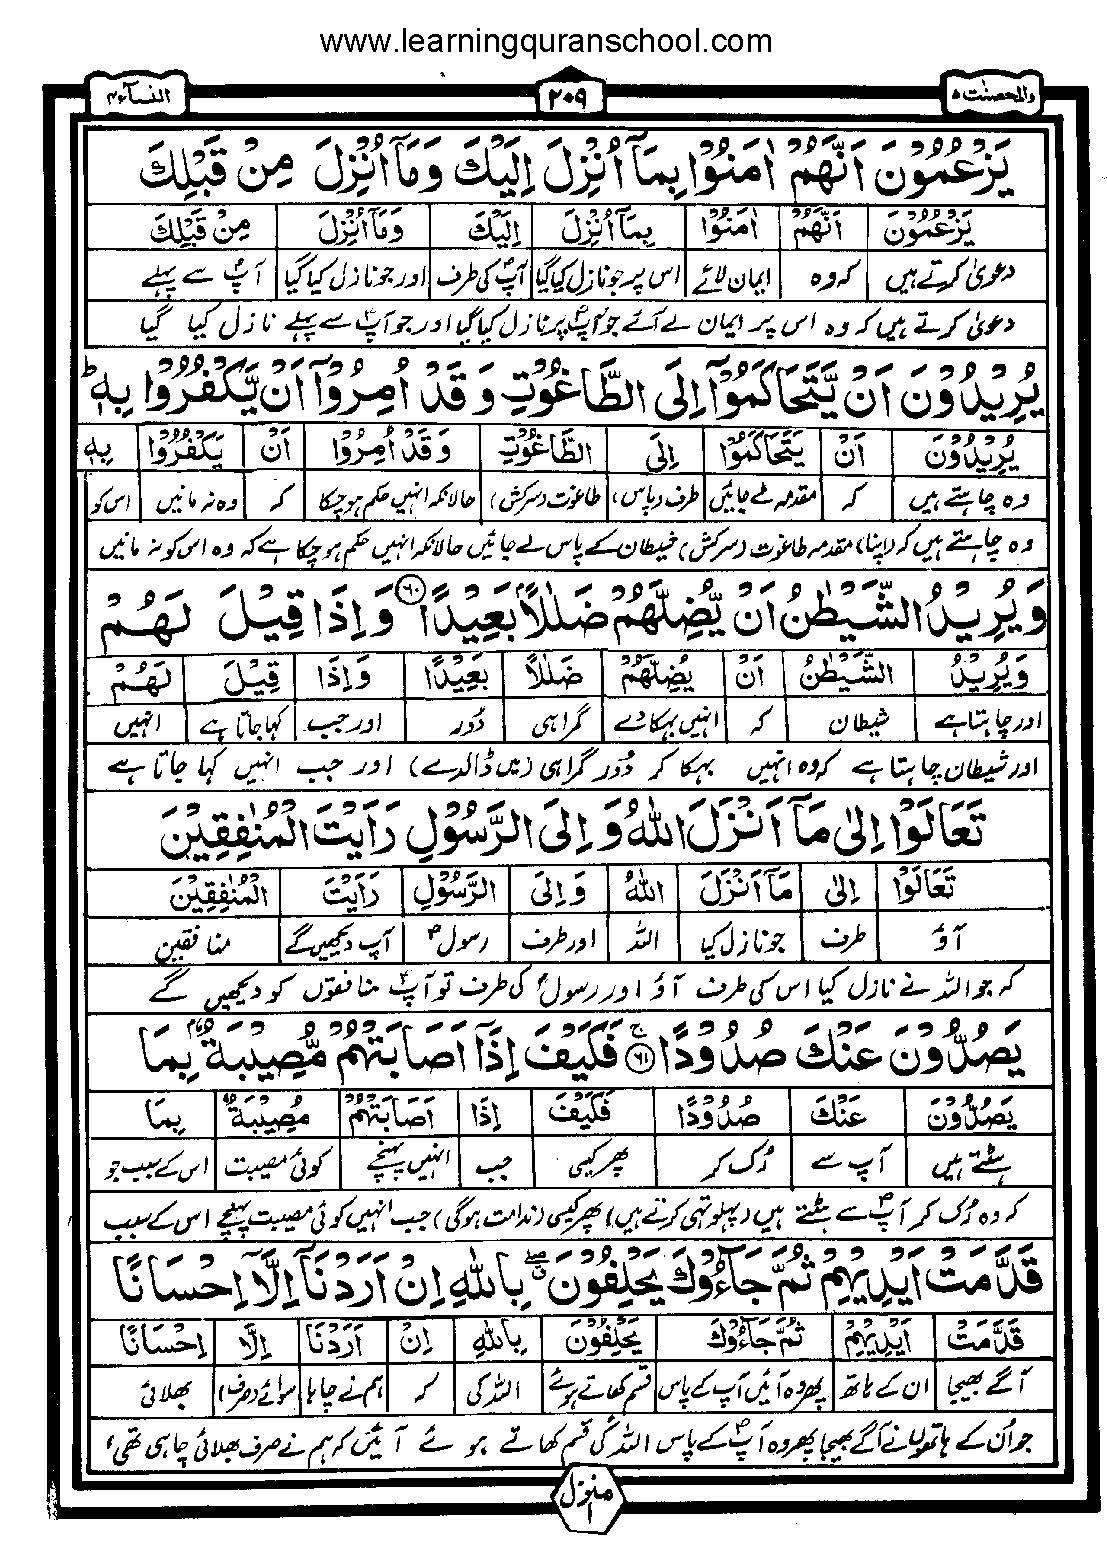 www.learningquranschool.com
والمحصنٰت ۵ ۲۰۹ النسآء ۴
يَزْعُمُوْنَ اَنَّهُمْ اٰمَنُوْا بِمَآ اُنْزِلَ اِلَيْكَ وَمَآ اُنْزِلَ مِنْ قَبْلِكَ
يَزْعُمُوْنَ اَنَّهُمْ اٰمَنُوْا بِمَآ اُنْزِلَ اِلَيْكَ وَمَآ اُنْزِلَ مِنْ قَبْلِكَ
دعویٰ کرتے ہیں کہ وہ ایمان لائے اس پر جو نازل کیا گیا آپؐ کی طرف اور جو نازل کیا گیا آپؐ سے پہلے
دعویٰ کرتے ہیں کہ وہ اس پر ایمان لے آئے جو آپؐ پر نازل کیا گیا اور جو آپؐ سے پہلے نازل کیا گیا
يُرِيْدُوْنَ اَنْ يَّتَحَاكَمُوْٓا اِلَى الطَّاغُوْتِ وَقَدْ اُمِرُوْٓا اَنْ يَّكْفُرُوْا بِهٖ ؕ
يُرِيْدُوْنَ اَنْ يَتَحَاكَمُوْٓا اِلَى الطَّاغُوْتِ وَقَدْ اُمِرُوْٓا اَنْ يَكْفُرُوْا بِهٖ
وہ چاہتے ہیں کہ مقدمہ لے جائیں طرف (پاس) طاغوت (سرکش) حالانکہ انہیں حکم ہو چکا کہ وہ نہ مانیں اس کو
وہ چاہتے ہیں کہ (اپنا) مقدمہ طاغوت (سرکش) شیطان کے پاس لے جائیں حالانکہ انہیں حکم ہو چکا ہے کہ وہ اس کو نہ مانیں
وَيُرِيْدُ الشَّيْطٰنُ اَنْ يُّضِلَّهُمْ ضَلٰلًاۢ بَعِيْدًا ۶۰ وَاِذَا قِيْلَ لَهُمْ
وَيُرِيْدُ الشَّيْطٰنُ اَنْ يُضِلَّهُمْ ضَلٰلًا بَعِيْدًا وَاِذَا قِيْلَ لَهُمْ
اور چاہتا ہے شیطان کہ انہیں بہکا دے گمراہی دُور اور جب کہا جاتا ہے انہیں
اور شیطان چاہتا ہے کہ وہ انہیں بہکا کر دُور گمراہی (میں ڈالدے) اور جب انہیں کہا جاتا ہے
تَعَالَوْا اِلٰى مَآ اَنْزَلَ اللّٰهُ وَاِلَى الرَّسُوْلِ رَاَيْتَ الْمُنٰفِقِيْنَ
تَعَالَوْا اِلٰى مَآ اَنْزَلَ اللّٰهُ وَاِلَى الرَّسُوْلِ رَاَيْتَ الْمُنٰفِقِيْنَ
آؤ طرف جو نازل کیا اللہ اور طرف رسولؐ آپ دیکھیں گے منافقین
کہ جو اللہ نے نازل کیا اس کی طرف آؤ اور رسولؐ کی طرف تو آپؐ منافقوں کو دیکھیں گے
يَصُدُّوْنَ عَنْكَ صُدُوْدًا ۶۱ ۚ فَكَيْفَ اِذَآ اَصَابَتْهُمْ مُّصِيْبَةٌۢ بِمَا
يَصُدُّوْنَ عَنْكَ صُدُوْدًا فَكَيْفَ اِذَا اَصَابَتْهُمْ مُصِيْبَةٌ بِمَا
ہٹتے ہیں آپ سے رُک کر پھر کیسی جب انہیں پہنچے کوئی مصیبت اس کے سبب جو
کہ وہ رُک کر آپؐ سے ہٹتے ہیں (پہلو تہی کرتے ہیں) پھر کیسی (ندامت ہوگی) جب انہیں کوئی مصیبت پہنچے اس کے سبب
قَدَّمَتْ اَيْدِيْهِمْ ثُمَّ جَآءُوْكَ يَحْلِفُوْنَ ۖ بِاللّٰهِ اِنْ اَرَدْنَآ اِلَّآ اِحْسَانًا
قَدَّمَتْ اَيْدِيْهِمْ ثُمَّ جَآءُوْكَ يَحْلِفُوْنَ بِاللّٰهِ اِنْ اَرَدْنَا اِلَّا اِحْسَانًا
آگے بھیجا ان کے ہاتھ پھر وہ آئیں آپ کے پاس قسم کھاتے ہوئے اللہ کی کہ ہم نے چاہا سوائے (صرف) بھلائی
جو اُن کے ہاتھوں نے آگے بھیجا پھر وہ آپؐ کے پاس اللہ کی قسم کھاتے ہوئے آئیں کہ ہم نے صرف بھلائی چاہی تھی
منزل ۱